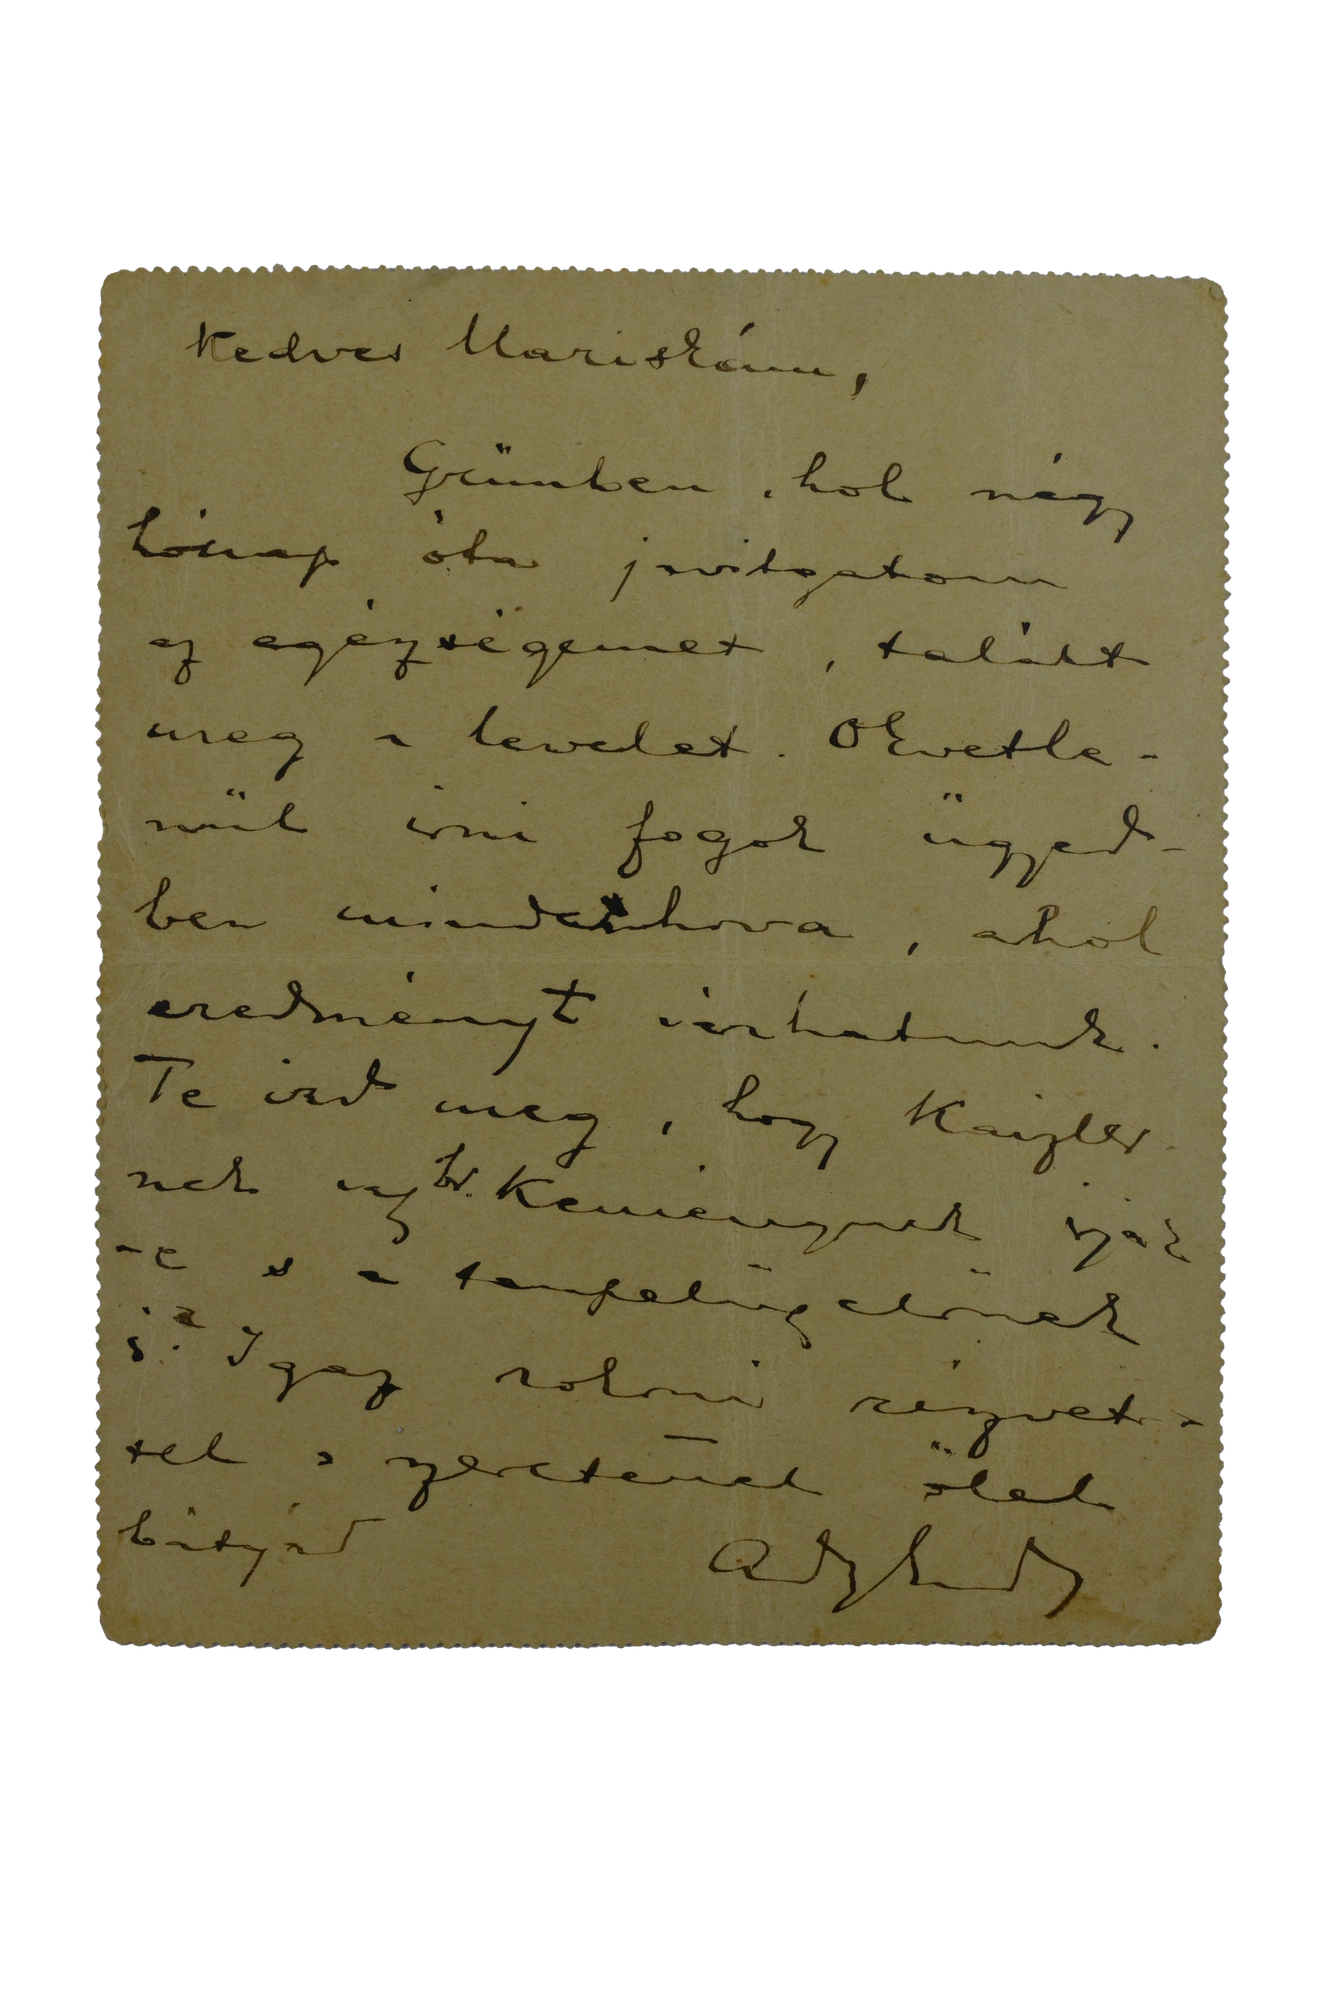 Kedves Mariskám,
Grünben, hol négy
hónap óta javitgatom
az egézségemet, talált
meg a leveled. Okvetle-
nül irni fogok ügyed-
ben mindenhova, ahol
eredményt várhatunk.
Te ird meg, hogy Kaizler
nek vagy br. Keménynek irjak
-e s a tanfelügyelőnek
is? Igaz rokoni részvét-
tel s szeretettel ölel
bátyád Ady Endre